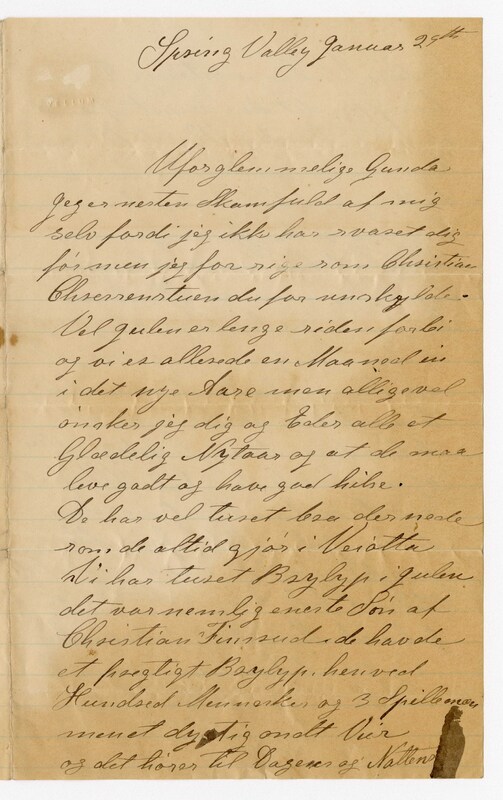 Spring Valley Januar 29th
Uforglemmelige Gunda
Jeg er nesten Skamfuld af mig
selv fordi jeg ikke har svaret dig
før men jeg for sige som Christian
du for unskylde.
Vel Julen er lenge siden forbi
og vi er allerede en Maaned in
i det nye Aare men alligevel
ønsker jeg dig og Eder alle et
Glædelig Nytaar og at de maa
leve godt og have god hilse.
De har vel turet bra der nede
som de altid gjør i
Vi har turet Brylyp i Julen
det var nemlig eneste Søn af
Christian Finsrud de havde
et pregtigt Brylyp henved
Hundred Mennesker og 3 Spillemen
men et dygtig ondt Veir
og det hører til Dagens og Nattens